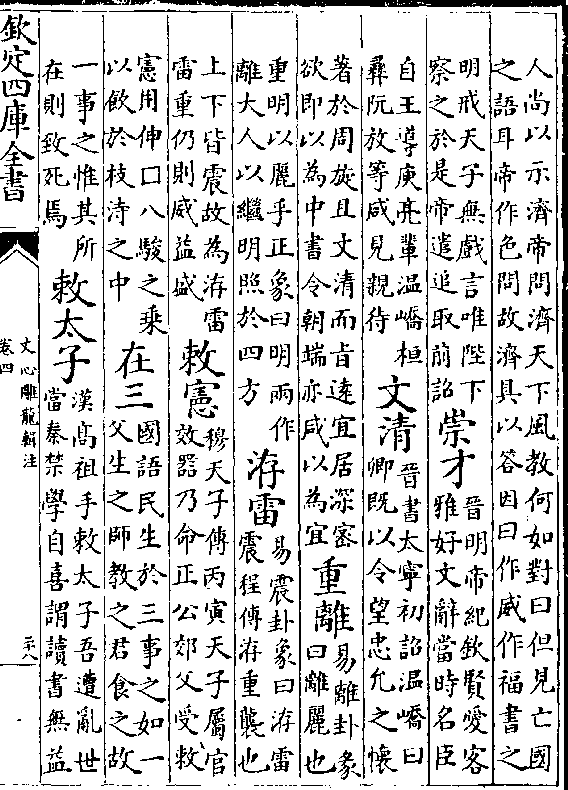 人尚以示濟帝問濟天下風教何如對曰但見亡國
之語耳帝作色問故濟具以答因曰作威作福書之
明戒天子無戲言唯陛下
察之於是帝遣追取前詔
崇才
晉明帝紀欽賢愛客
雅好文辭當時名臣
自王導庾亮輩温嶠桓
彝阮放等咸見親待
文清
晉書太寧初詔温嶠曰
卿既以令望忠允之懷
著於周旋且文清而㫖逺宜居深密
欲即以為中書令朝端亦咸以為宜
重離
易離卦彖
曰離麗也
重明以麗乎正象曰明兩作
離大人以繼明照於四方
洊雷
易震卦象曰洊雷
震程傳洊重襲也
上下皆震故為洊雷
雷重仍則威益盛
敕憲
穆天子傳丙寅天子屬官
效器乃命正公郊父受敕
憲用伸囗八駿之乗
以飲於枝洔之中
在三
國語民生於三事之如一
父生之師教之君食之故
一事之惟其所
在則致死焉
敕太子
漢髙祖手敕太子吾遭亂世
當秦禁學自喜謂讀書無益
欽定四庫全書
文心雕龍輯注
卷四
二十八